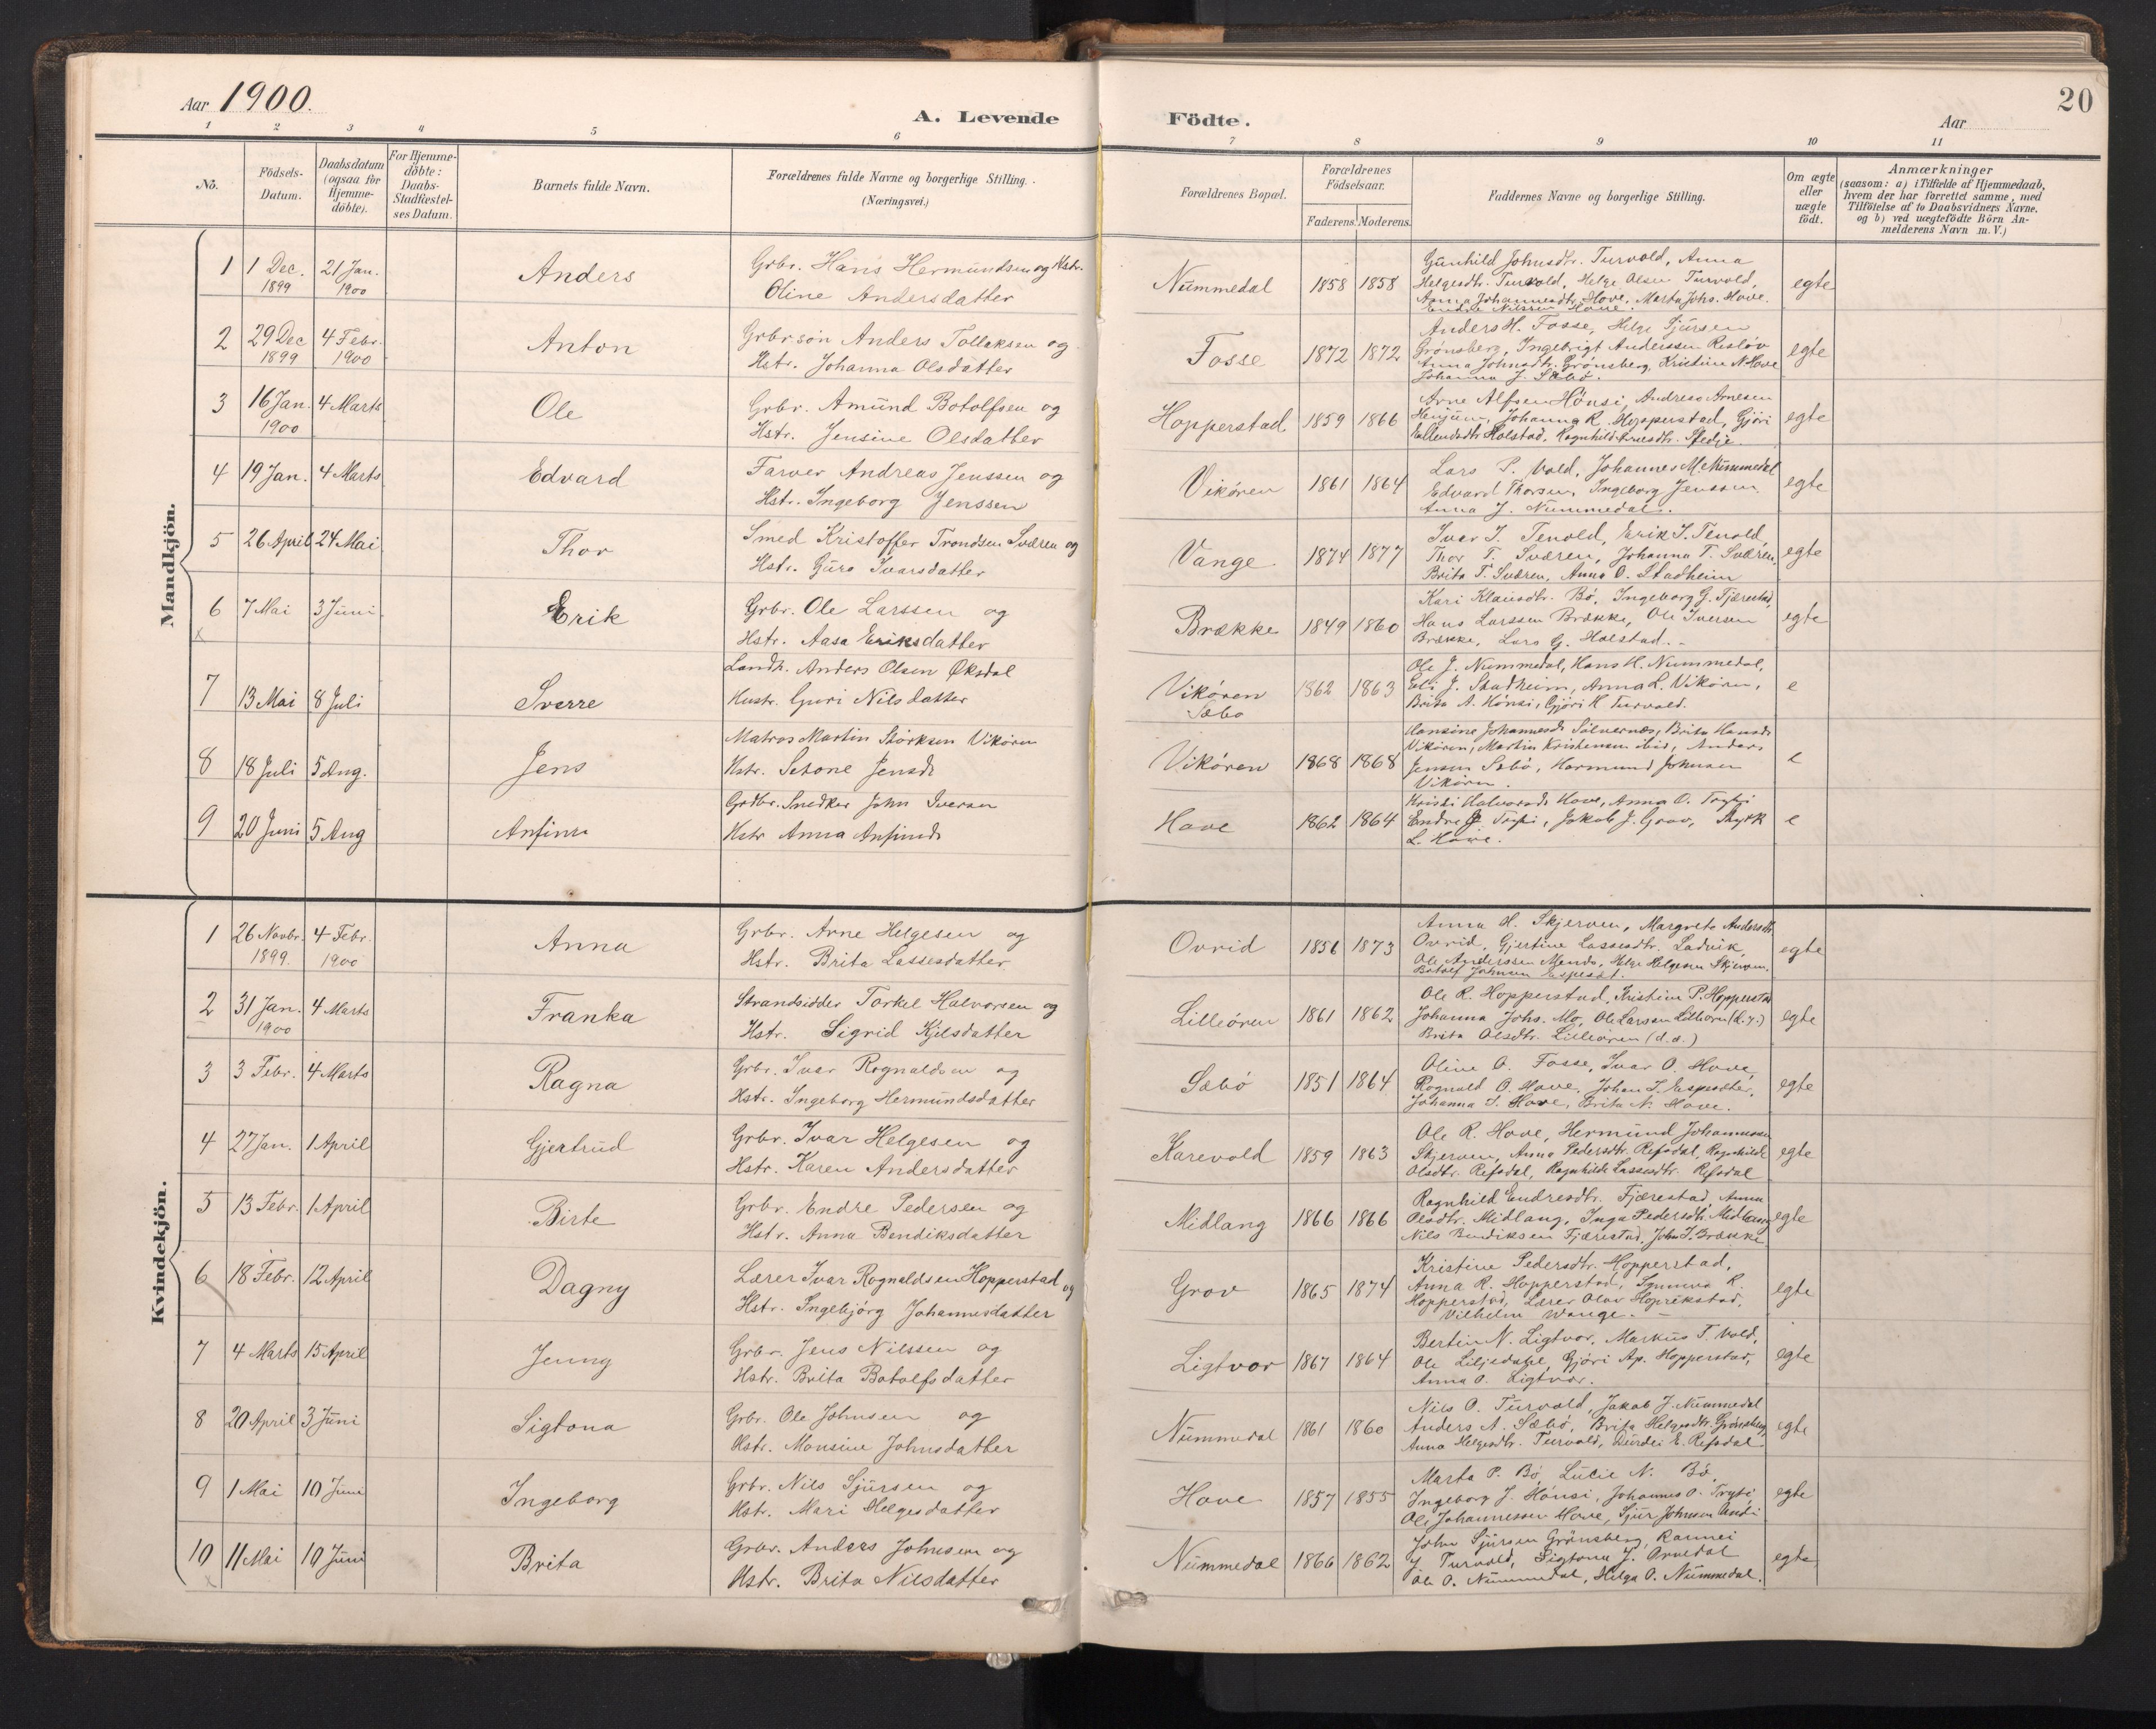 Aar 1900.
A. Levende Födte.
Aar
20
1 2 3 4 5 6 7 8 9 10 11
No.
Födsels-Datum.
Daabsdatum (ogsaa for Hjemme-döbte).
For Hjemme-döbte: Daabs-Stadfæstel-ses Datum.
Barnets fulde Navn.
Forældrenes fulde Navne og borgerlige Stilling. (Næringsvei.)
Forældrenes Bopæl.
Forældrenes Födselsaar.
Faderens. Moderens.
Faddernes Navne og borgerlige Stilling.
Om ægte eller uægte födt.
Anmærkninger
(saasom: a) i Tilfælde af Hjemmedaab, hvem der har forrettet samme, med Tilföielse af to Daabsvidners Navne. og b) ved uægtefödte Börn An-melderens Navn m. V.)
Mandkjön.
1 1 Dec. 1899 21 Jan. 1900 Anders Grbr. Hans Hermundsen og Hstr. Oline Andersdatter Nummedal 1858 1858 Gunhild Johnsdtr. Turvold, Anna
Helgesdtr. Turvold, Helge Olsen Turvold,
Anna Johannesdtr. Hove, Marta Johs. Hove.
Endre Nilssen Hove. egte
2 29 Dec 1899 4 Febr. 1900 Anton Grbr søn Anders Tollaksen og Hstr. Johanna Olsdatter Fosse 1872 1872 Anders H. Fosse, Helge Sjursen
Grønsberg, Ingebrigt Anderssen
Anna Johnsdtr. Grønsberg, Kristine N Hove
Johanna J. Sæbø. egte
3 16 Jan. 1900 4 Marts Ole Grbr. Amund Botolfsen og Hstr. Jensine Olsdatter Hopperstad 1859 1866 Arne Alfsen Hönsi, Andreas Arnesen
Henjum, Johanna R. Hopperstad, Gjöri
Ellendsdtr Holstad, Ragnhild Arnesdtr. Stedje egte
4 19 Jan. 4 Marts Edvard Farver Andreas Jenssen og Hstr. Ingeborg Jenssen Vikören 1861 1864 Lars P. Vold, Johannes M. Nummedal
Edvard Thorsen, Ingeborg Jenssen
Anna J. Nummedal. egte
5 26 April 24 Mai Thor Smed Kristoffer Trondsen Sværen og Hstr. Guro Ivarsdatter Vange 1874 1877 Ivar I. Tenold, Erik I. Tenold,
Thor T. Sværen, Johanna T. Sværen,
Brita T. Sværen, Anna O. Stadheim egte
6 x 7 Mai 3 Juni Erik Grbr. Ole Larssen og Hstr. Aasa Eriksdatter Brække 1849 1860 Kari Klausdtr. Bö, Ingeborg G. Fjærestad,
Hans Larssen Brække, Ole Iversen
Brække, Lars G. Holstad. egte
7 13 Mai 8 Juli Sverre Landh. Anders Olsen Øksdal Hustr. Guri Nilsdatter Vikören Sæbo 1862 1863 Ole J. Nummedal, Hans H. Nummedal,
Eli J. Stadheim, Anna L. Vikören,
Brita A. Hönsi, Gjöri H Turvold. e
8 18 Juli 5 Aug. Jens Matros Martin Störksen Vikören Hstr. Setone Jensdr Vikören 1868 1868 Hansine Johannesdr Sölvernæs, Brita Hansdr
Vikören, Martin Kristensen ibid, Anders
Jensen Sæbö, Hermund Johnsen
Vikören. e
9 20 Juni 5 Aug Anfinn Grdbr. Snedker John Iversen Hstr Anna Anfinsdr Hove 1862 1864 Kristi Halvorsdr Hove, Anna O. Tryti
Endre J Tryti, Jakob J. Grov,
L. Hove. e
Kvindekjön.
1 26 Novbr. 1899. 4 Febr. 1900 Anna Grbr. Arne Helgesen og Hstr. Brita Lassesdatter Ovrid 1856 1873 Anna H. Skjerven, Margreta Andersdtr
Ovrid, Gjertine Lassesdtr. Ladvik
Ole Anderssen Mende, Helge Helgesen Skjerven.
Botolf Johnsen Espeset. egte
2 31 Jan. 1900 4 Marts Franka Strandsidder Torkel Halvorsen og Hstr. Sigrid Kjelsdatter Lilleören 1861 1862 Ole R. Hopperstad, Kristine P. Hopperstad
Johanna Johs. Mo, Ole Larsen Lilleören (d. y.)
Brita Olsdtr. Lilleören (d. æ.) egte
3 3 Febr. 4 Marts Ragna Grbr. Ivar Rognaldsen og Hstr. Ingeborg Hermundsdatter Sæbö 1851 1864 Oline O. Fosse, Ivar O. Hove,
Rognald O. Hove, Johan I.
Johanna I. Hove, Brita N. Hove. egte
4 27 Jan. 1 April Gjertrud Grbr. Ivar Helgesen og Hstr. Karen Andersdatter Karevold 1859 1863 Ole R. Hove, Hermund Johannessen
Skjerven, Anna Pedersdtr. Refsdal, Ragnhilde
Olsdtr. Refsdal, Ragnhilde Lassesdtr. Refsdal egte
5 13 Febr. 1 April Birte Grbr. Endre Pedersen og Hstr. Anna Bendiksdatter Midlang 1866 1866 Ragnhild Endresdtr. Fjærestad, Anna
Olsdtr. Midlang, Inga Pedersdtr. Midlang
Nils Bendiksen Fjærestad, John I. Brække egte
6 18 Febr. 12 April Dagny Lærer Ivar Rognaldsen Hopperstad og Hstr. Ingebjörg Johannesdatter Grov 1865 1874 Kristine Pedersdtr. Hopperstad,
Anna R. Hopperstad, Synneva R.
Hopperstad, Lærer Olav Hoprekstad,
Vilhelm Wange. egte
7 4 Marts 15 April Jenny Grbr. Jens Nilssen og Hstr. Brita Botolfsdatter Ligtvor 1867 1864 Bertin N. Ligtvor, Markus T. Vold,
Ole Liljedahl, Gjöri Ap. Hopperstad,
Anna O. Ligtvor. egte
8 20 April 3 Juni Sigtona Grbr. Ole Johnsen og Hstr. Monsine Johnsdatter Nummedal 1861 1860 Nils O. Turvold, Jakob J. Nummedal
Anders A. Sæbö, Brita Helgesdtr. Grønsberg,
Anna Helgesdtr. Turvold, Durdei E. Refsdal. egte
9 1 Mai 10 Juni Ingeborg Grbr. Nils Sjursen og Hstr. Mari Helgesdatter Hove 1857 1855 Marta P. Bö, Lucie N. Bö,
Ingeborg J. Hönsi, Johannes O. Tryti
Ole Johannessen Hove, Sjur Johnsen egte
10 x 11 Mai 10 Juni Brita Grbr. Anders Johnsen og Hstr. Brita Nilsdatter Nummedal 1866 1862 John Sjursen Grönsberg, Rannei
J Turvold, Sigtona J. Orvedal
Ole O. Nummedal, Helga O. Nummedal. egte